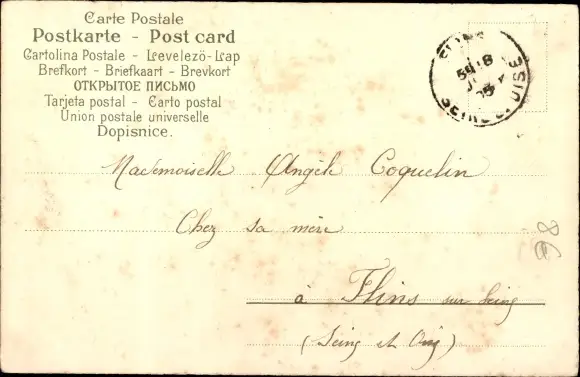 Carte Postale
Postkarte - Post card
Cartolina Postale - Levelezö-Lap
Brefkort - Briefkaart - Brevkort
ОТКРЫТОЕ ПИСЬМО
Tarjeta postal - Carto postal
Union postale universelle
Dopisnice.
SEINE ET OISE
Mademoiselle Angèle Coquelin
Chez sa mère
à Flins sur Seine
(Seine et Oise)